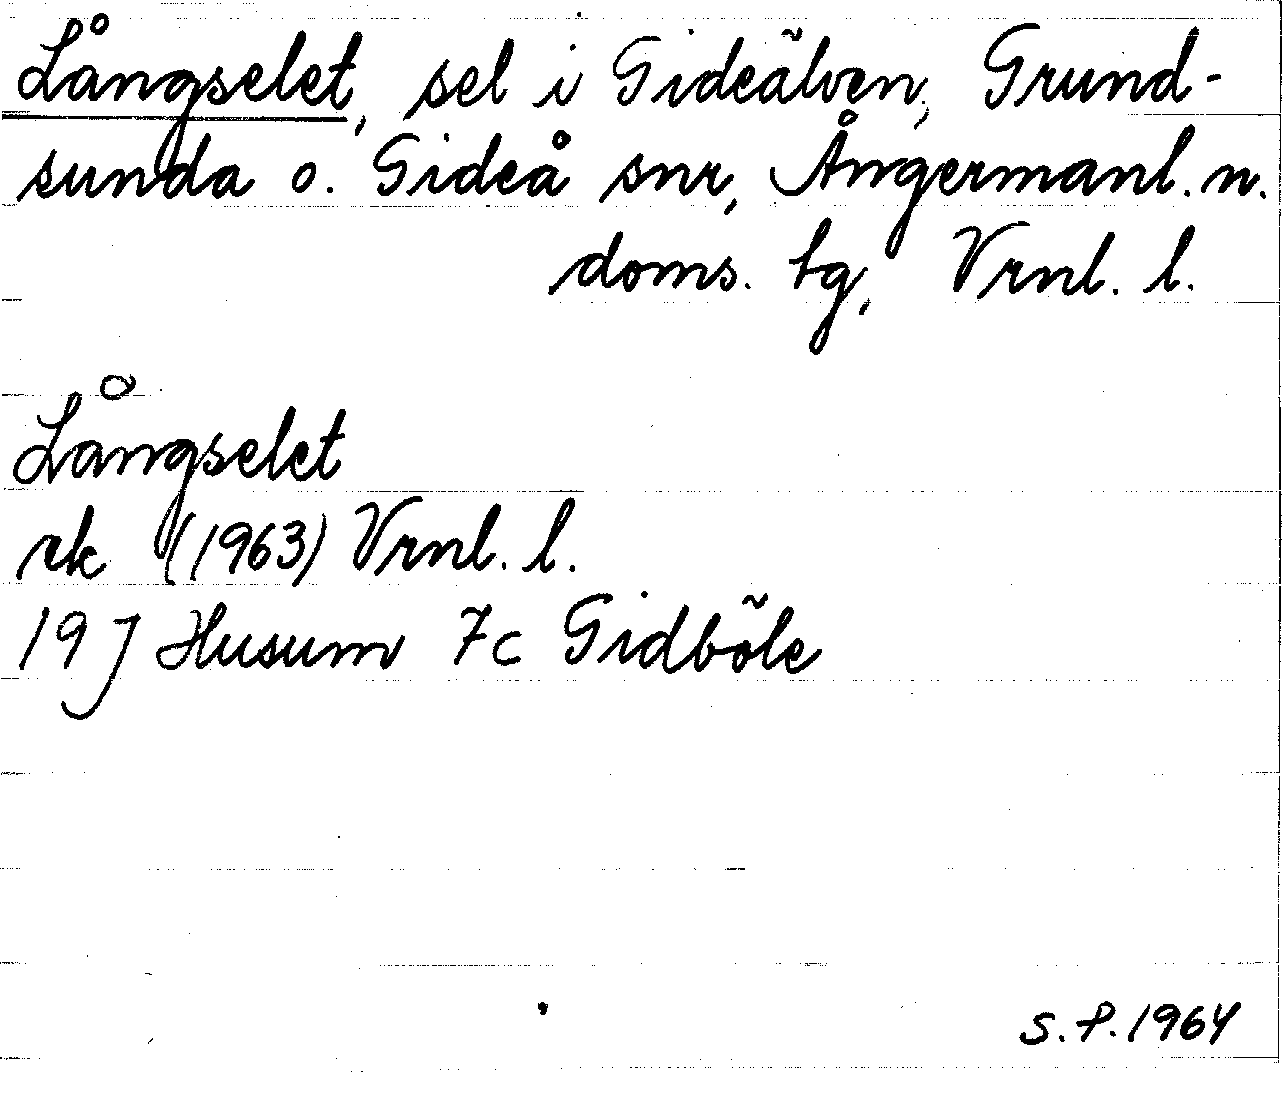 Långselet, sel i Gideälven, Grund-
sunda o. Gideå snr, Ångermanl. n.
doms. tg, Vrnl. l.
Långselet
rk (1963) Vrnl. l.
19 J Husum 7c Gidböle
S. P. 1964